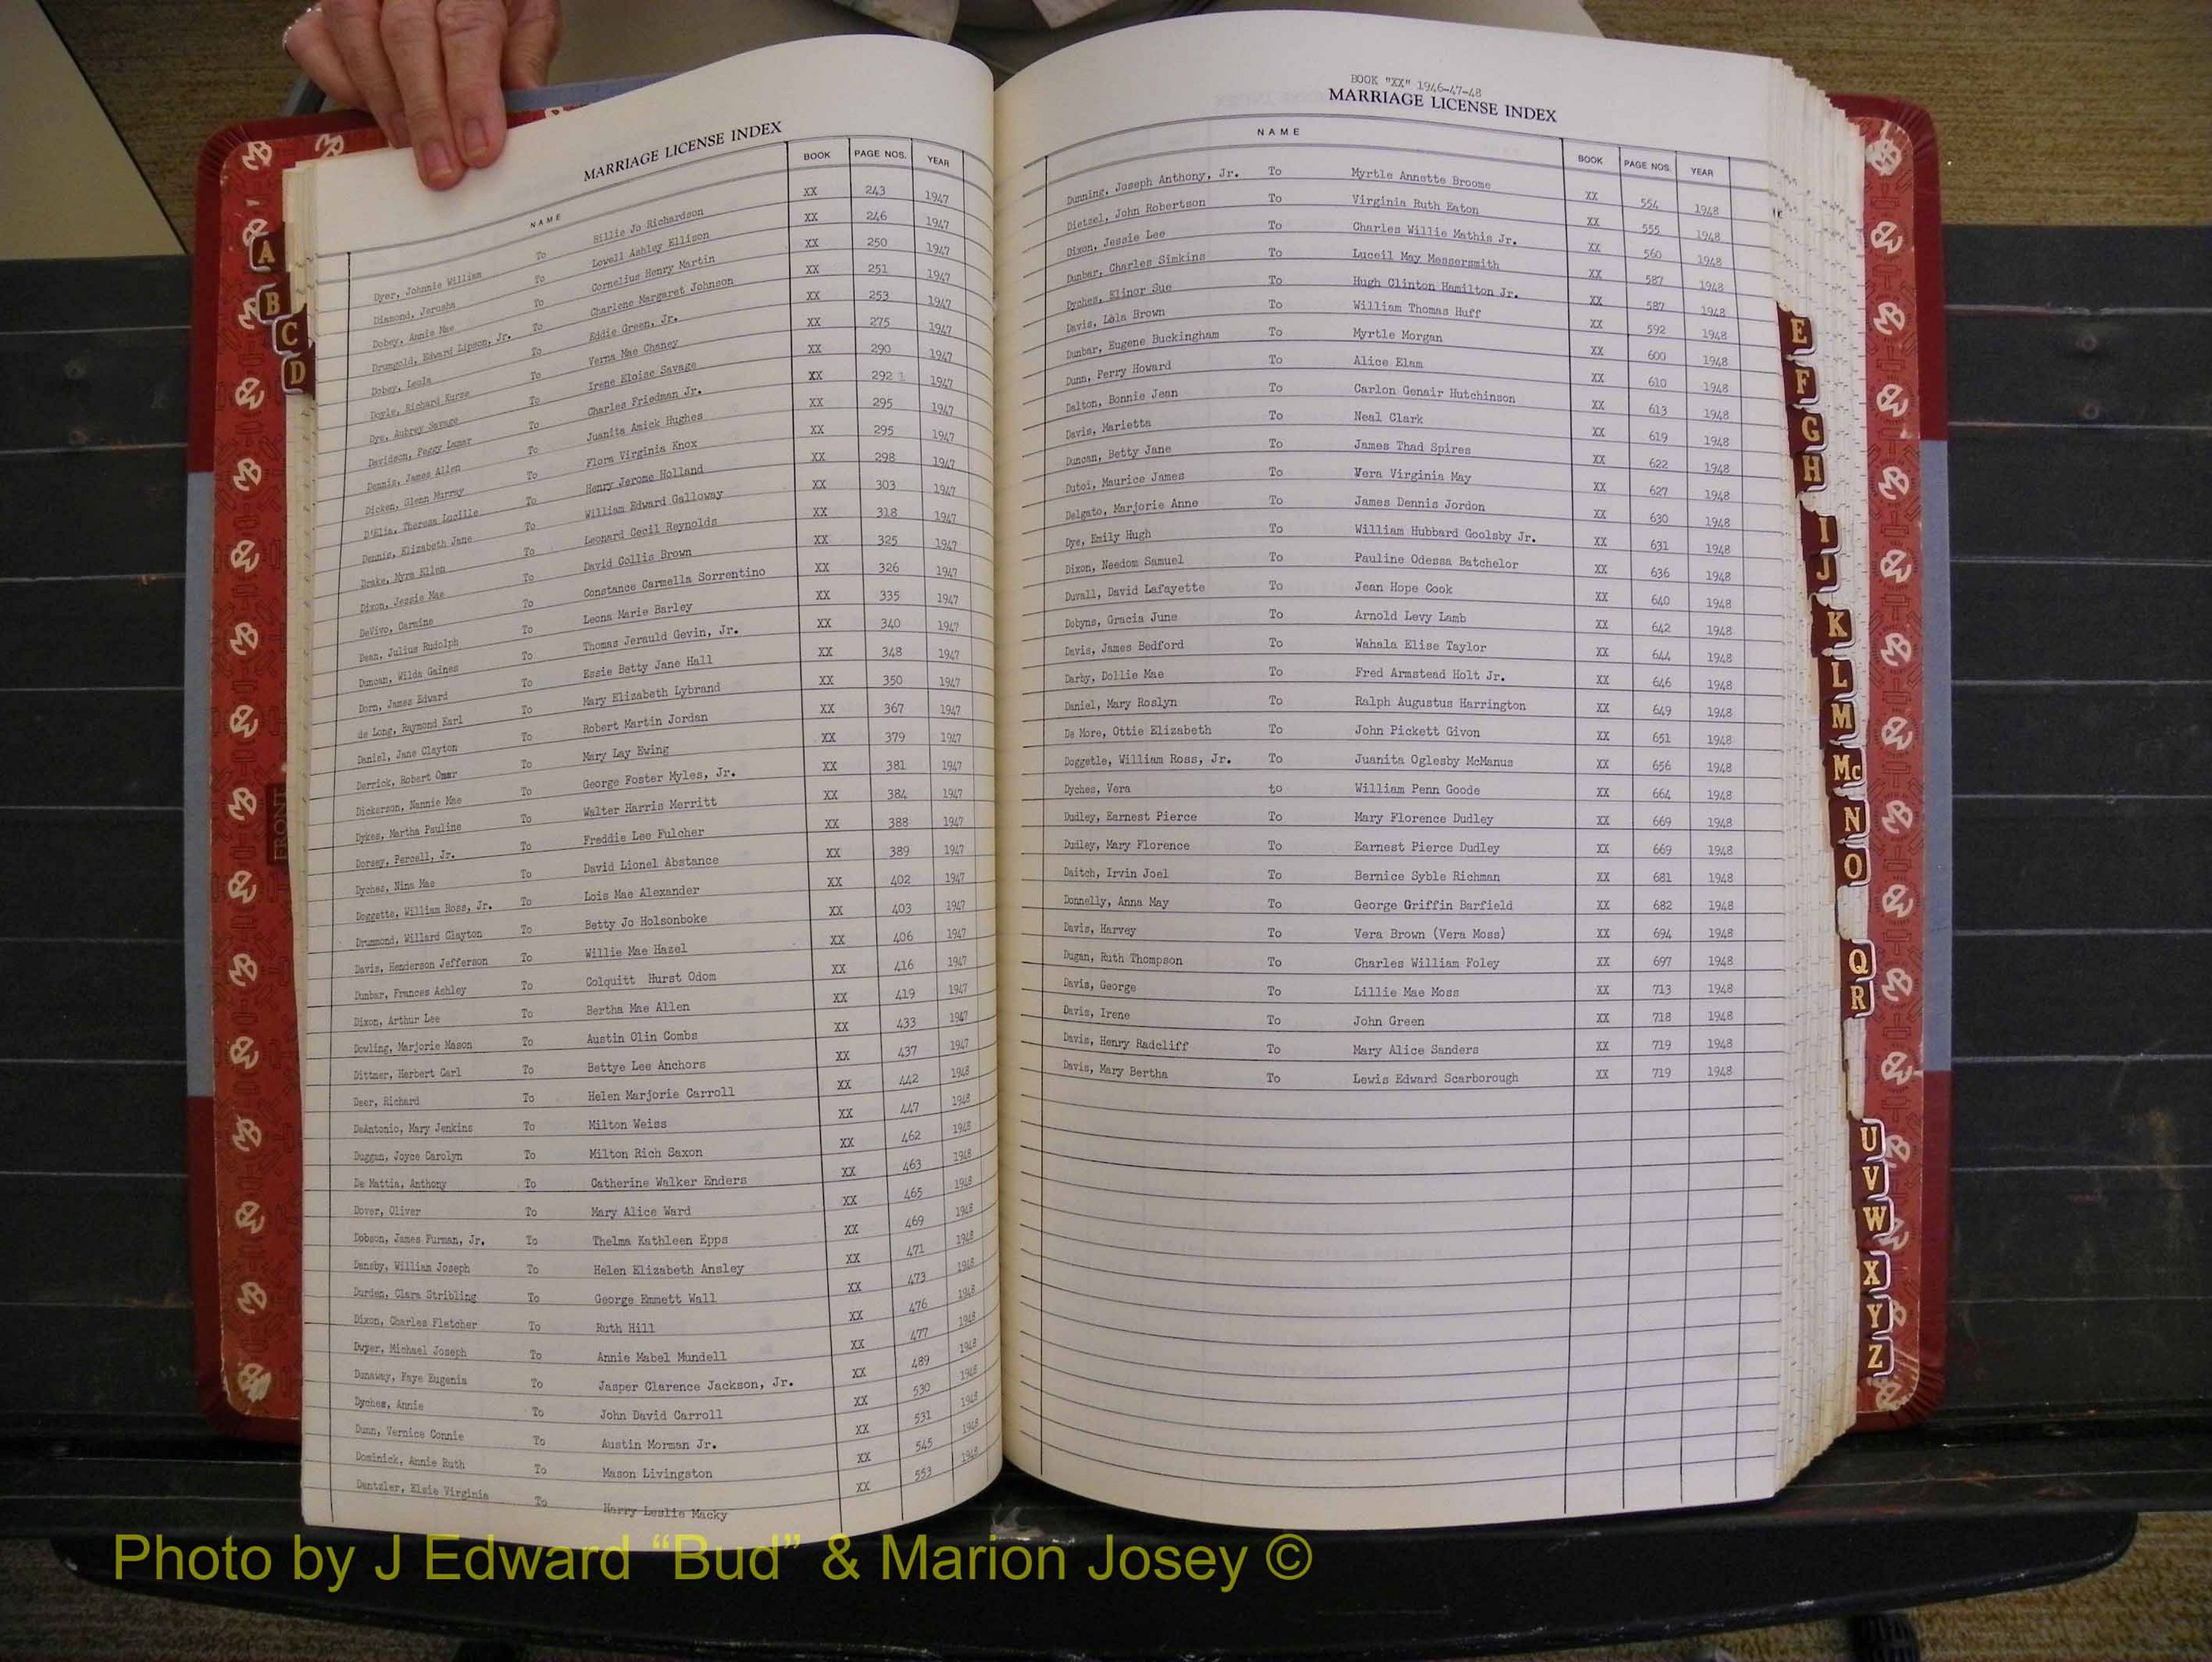 MARRIAGE LICENSE INDEX
NAME BOOK PAGE NOS. YEAR
Dyer, Johnnie William To Billie Jo Richardson XX 243 1947
Diamond, Jerusha To Lowell Ashley Ellison XX 246 1947
Dobey, Annie Mae To Cornelius Henry Martin XX 250 1947
Drumgold, Edward Lipson, Jr. To Charlene Margaret Johnson XX 251 1947
Dobey, Leula To Eddie Green, Jr. XX 253 1947
Doyle, Richard Kurse To Verna Mae Chaney XX 275 1947
Dye, Aubrey Savage To Irene Eloise Savage XX 290 1947
Davidson, Peggy Lamar To Charles Friedman Jr. XX 292 1947
Dennis, James Allen To Juanita Amick Hughes XX 295 1947
Dicken, Glenn Murray To Flora Virginia Knox XX 295 1947
D'Elia, Theresa Lucille To Henry Jerome Holland XX 298 1947
Dennis, Elizabeth Jane To William Edward Galloway XX 303 1947
Drake, Myra Ellen To Leonard Cecil Reynolds XX 318 1947
Dixon, Jessie Mae To David Collis Brown XX 325 1947
DeVivo, Carmine To Constance Carmella Sorrentino XX 326 1947
Dean, Julius Rudolph To Leona Marie Barley XX 335 1947
Duncan, Wilda Gaines To Thomas Jerauld Gevin, Jr. XX 340 1947
Dorn, James Edward To Essie Betty Jane Hall XX 348 1947
de Long, Raymond Earl To Mary Elizabeth Lybrand XX 350 1947
Daniel, Jane Clayton To Robert Martin Jordan XX 367 1947
Derrick, Robert Omar To Mary Lay Ewing XX 379 1947
Dickerson, Nannie Mae To George Foster Myles, Jr. XX 381 1947
Dykes, Martha Pauline To Walter Harris Merritt XX 384 1947
Dorsey, Percell, Jr. To Freddie Lee Fulcher XX 388 1947
Dyches, Nina Mae To David Lionel Abstance XX 389 1947
Doggette, William Ross, Jr. To Lois Mae Alexander XX 402 1947
Drummond, Willard Clayton To Betty Jo Holsonboke XX 403 1947
Davis, Henderson Jefferson To Willie Mae Hazel XX 406 1947
Dunbar, Frances Ashley To Colquitt Hurst Odom XX 416 1947
Dixon, Arthur Lee To Bertha Mae Allen XX 419 1947
Dowling, Marjorie Mason To Austin Olin Combs XX 433 1947
Dittmer, Herbert Carl To Bettye Lee Anchors XX 437 1947
Deer, Richard To Helen Marjorie Carroll XX 442 1948
DeAntonio, Mary Jenkins To Milton Weiss XX 447 1948
Duggan, Joyce Carolyn To Milton Rich Saxon XX 462 1948
De Mattia, Anthony To Catherine Walker Enders XX 463 1948
Dover, Oliver To Mary Alice Ward XX 465 1948
Dobson, James Furman, Jr. To Thelma Kathleen Epps XX 469 1948
Dansby, William Joseph To Helen Elizabeth Ansley XX 471 1948
Durden, Clara Stribling To George Emmett Wall XX 473 1948
Dixon, Charles Fletcher To Ruth Hill XX 476 1948
Dwyer, Michael Joseph To Annie Mabel Mundell XX 477 1948
Dunaway, Faye Eugenia To Jasper Clarence Jackson, Jr. XX 489 1948
Dyches, Annie To John David Carroll XX 530 1948
Dunn, Vernice Connie To Austin Morman Jr. XX 531 1948
Dominick, Annie Ruth To Mason Livingston XX 545 1948
Dantzler, Elsie Virginia To Harry Leslie Macky XX 553 1948
BOOK "XX" 1946-47-48
MARRIAGE LICENSE INDEX
NAME BOOK PAGE NOS. YEAR
Dunning, Joseph Anthony, Jr. To Myrtle Annette Broome XX 554 1948
Dietzel, John Robertson To Virginia Ruth Eaton XX 555 1948
Dixon, Jessie Lee To Charles Willie Mathis Jr. XX 560 1948
Dunbar, Charles Simkins To Luceil May Messersmith XX 587 1948
Dyches, Elinor Sue To Hugh Clinton Hamilton Jr. XX 587 1948
Davis, Lola Brown To William Thomas Huff XX 592 1948
Dunbar, Eugene Buckingham To Myrtle Morgan XX 600 1948
Dunn, Perry Howard To Alice Elam XX 610 1948
Dalton, Bonnie Jean To Carlon Genair Hutchinson XX 613 1948
Davis, Marietta To Neal Clark XX 619 1948
Duncan, Betty Jane To James Thad Spires XX 622 1948
Dutoi, Maurice James To Vera Virginia May XX 627 1948
Delgato, Marjorie Anne To James Dennis Jordon XX 630 1948
Dye, Emily Hugh To William Hubbard Goolsby Jr. XX 631 1948
Dixon, Needom Samuel To Pauline Odessa Batchelor XX 636 1948
Duvall, David Lafayette To Jean Hope Cook XX 640 1948
Dobyns, Gracia June To Arnold Levy Lamb XX 642 1948
Davis, James Bedford To Wahala Elise Taylor XX 644 1948
Darby, Dollie Mae To Fred Armstead Holt Jr. XX 646 1948
Daniel, Mary Roslyn To Ralph Augustus Harrington XX 649 1948
De More, Ottie Elizabeth To John Pickett Givon XX 651 1948
Doggetle, William Ross, Jr. To Juanita Oglesby McManus XX 656 1948
Dyches, Vera to William Penn Goode XX 664 1948
Dudley, Earnest Pierce To Mary Florence Dudley XX 669 1948
Dudley, Mary Florence To Earnest Pierce Dudley XX 669 1948
Daitch, Irvin Joel To Bernice Syble Richman XX 681 1948
Donnelly, Anna May To George Griffin Barfield XX 682 1948
Davis, Harvey To Vera Brown (Vera Moss) XX 694 1948
Dugan, Ruth Thompson To Charles William Foley XX 697 1948
Davis, George To Lillie Mae Moss XX 713 1948
Davis, Irene To John Green XX 718 1948
Davis, Henry Radcliff To Mary Alice Sanders XX 719 1948
Davis, Mary Bertha To Lewis Edward Scarborough XX 719 1948
A
B
C
D
FRONT
E
F
G
H
I
J
K
L
M
Mc
N
O
Q
R
U
V
W
X
Y
Z
Photo by J Edward “Bud” & Marion Josey ©